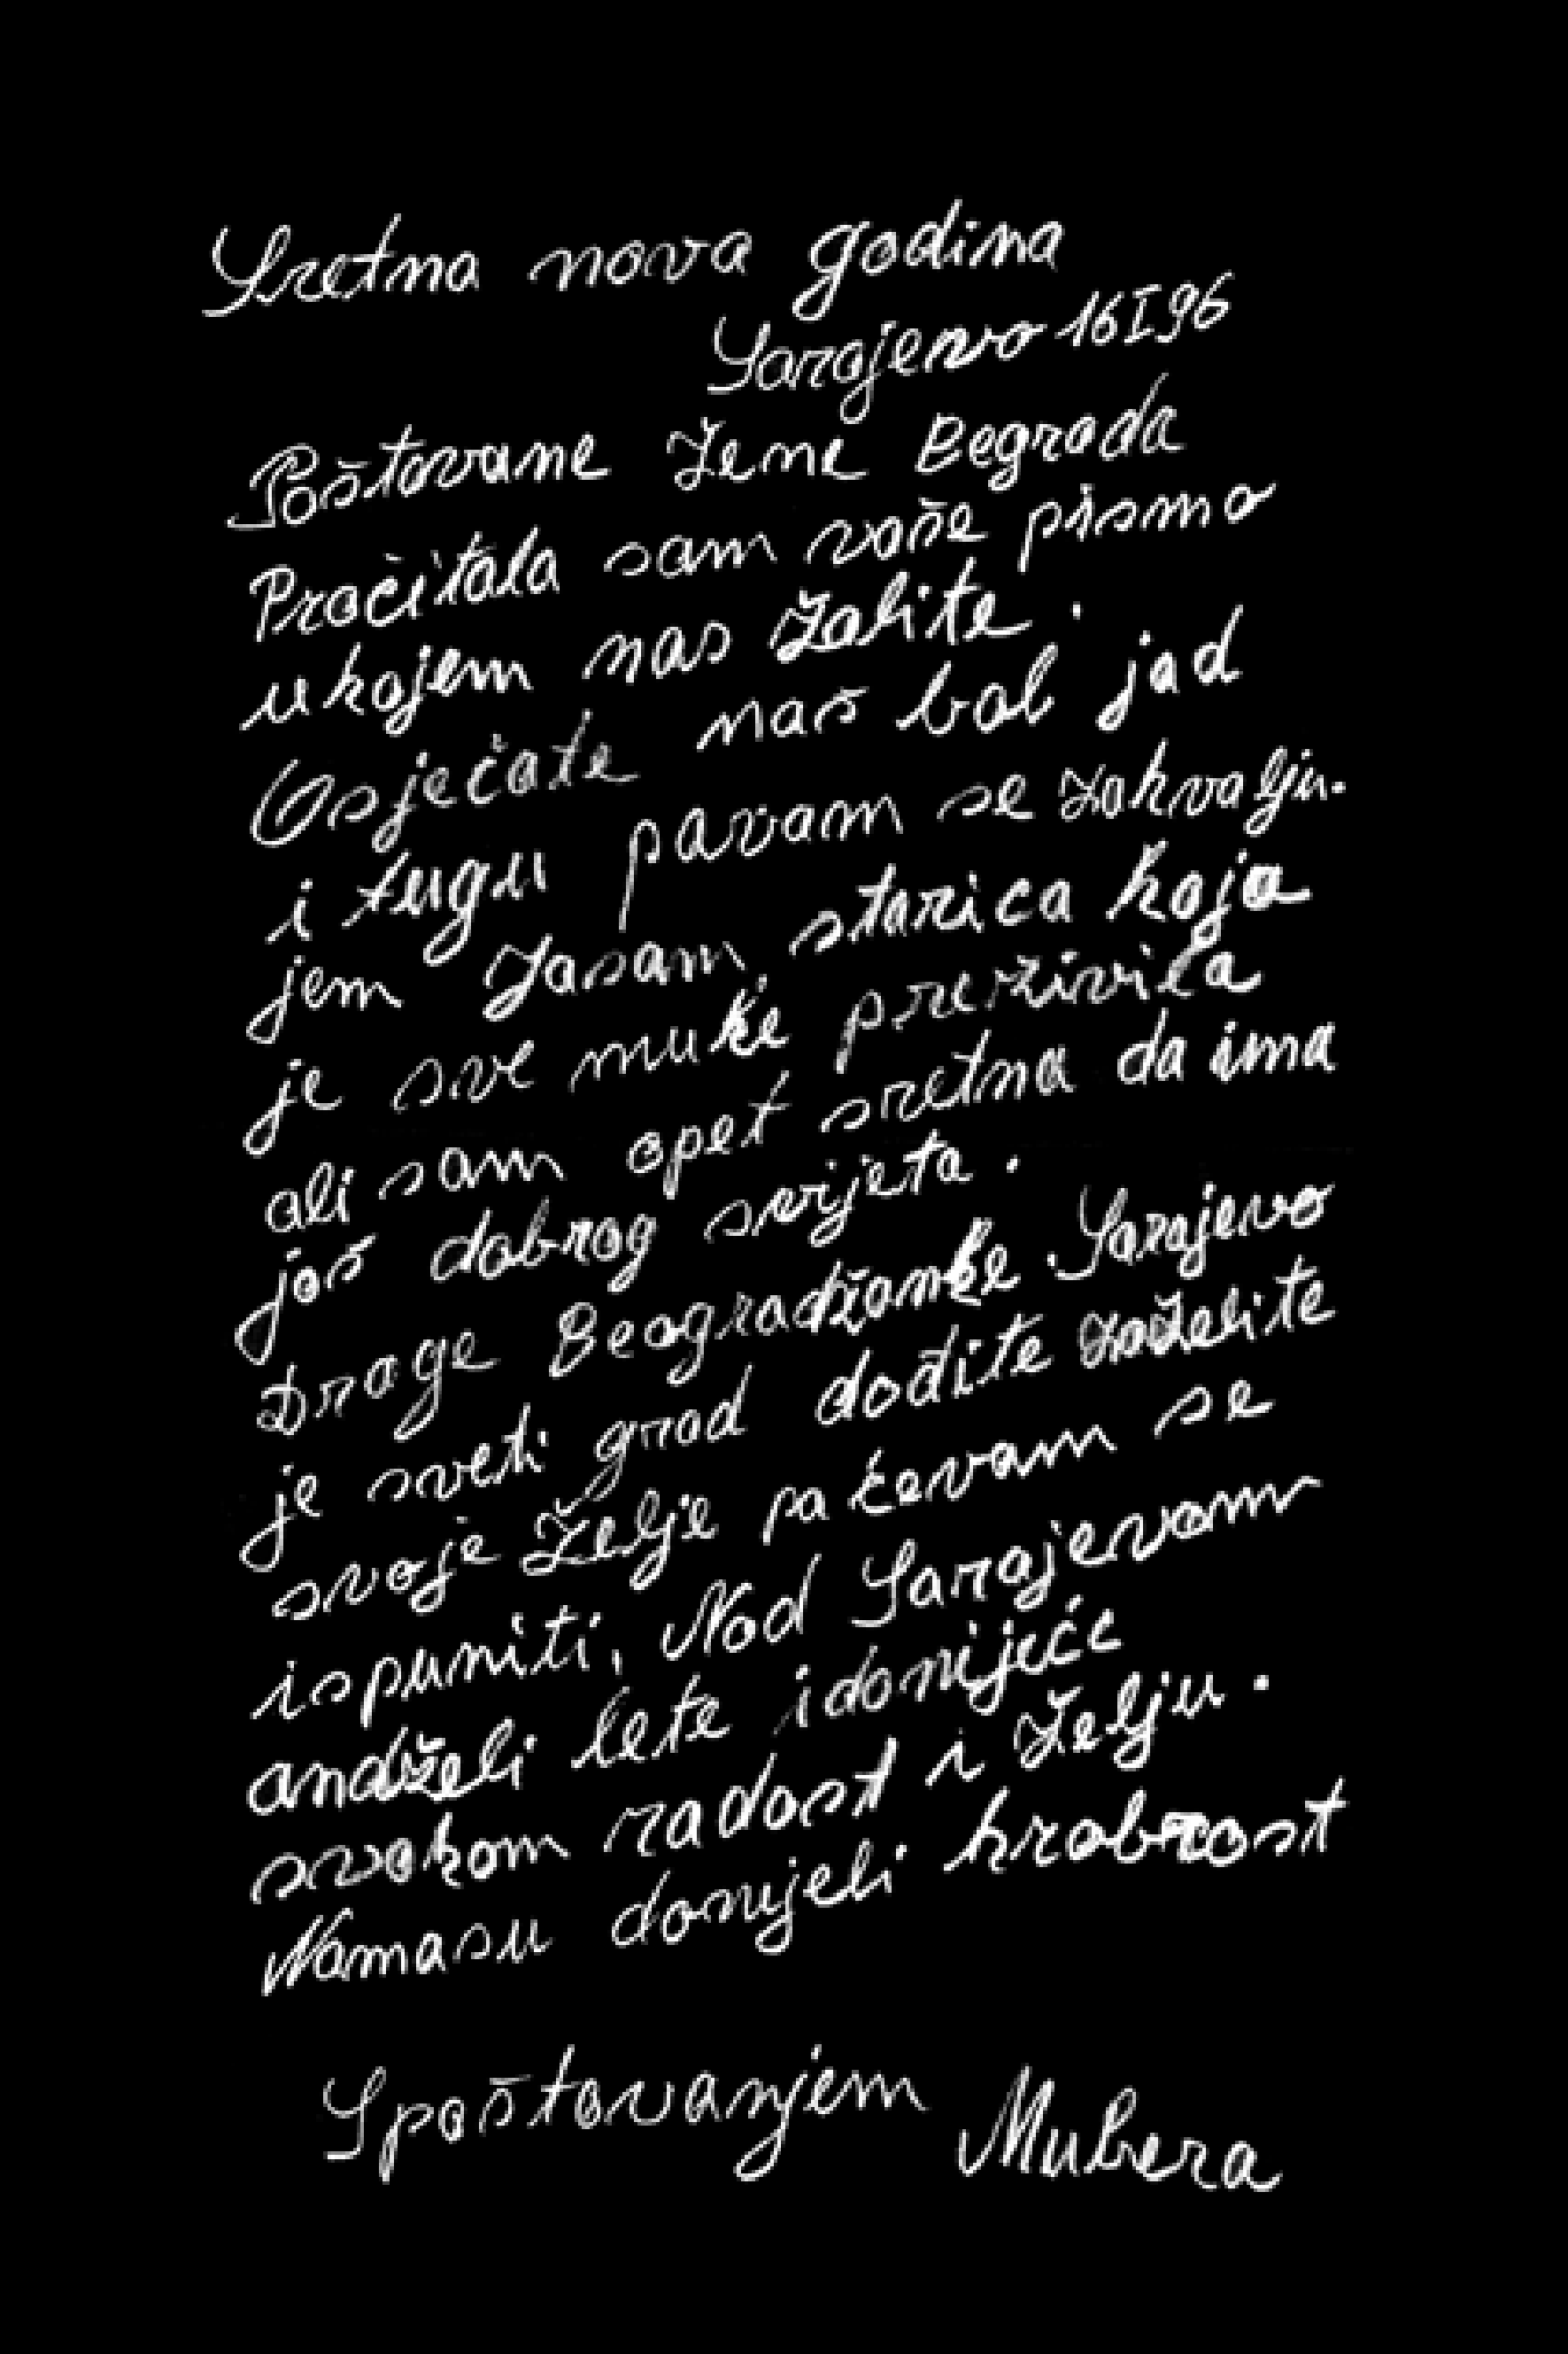 Sretna nova godina
Sarajevo 16 I 96
Poštovane žene Begrada
Pročitala sam vaše pismo
ukojem nas žalite.
Osječate naš bol jad
i tugu pavam se zahvalju.
jem Jasam, starica koja
je sve muke preživila
ali sam opet sretna da ima
još dobrog svijeta.
Drage Beogradžanke. Sarajevo
je sveti grad dođite zaželite
svoje želje pa ćevam se
ispuniti, Nad Sarajevom
andželi lete idonijeće
svakom radost i želju.
Namasu donijeli hrabrost
Spoštovanjem Mubera